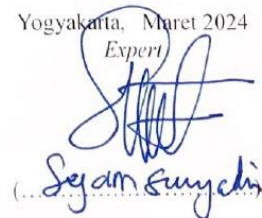 Yogyakarta, Maret 2024
Expert
(Sejam Suryadin)